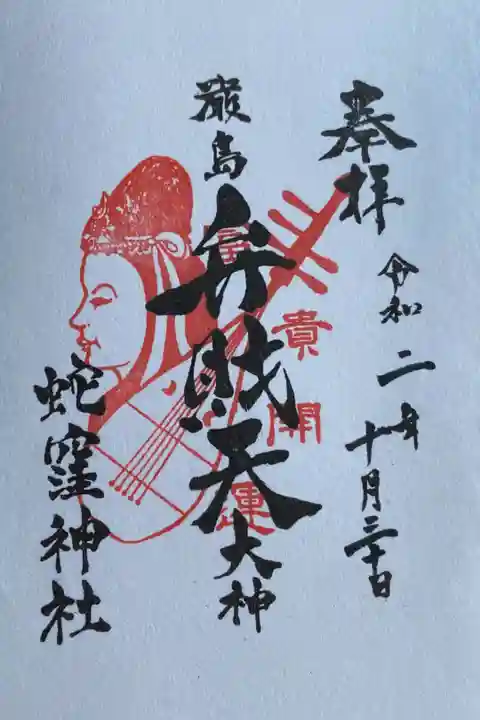 奉拝
令和二年十月三十日
厳島
弁財天
大神
富貴開運
蛇窪神社